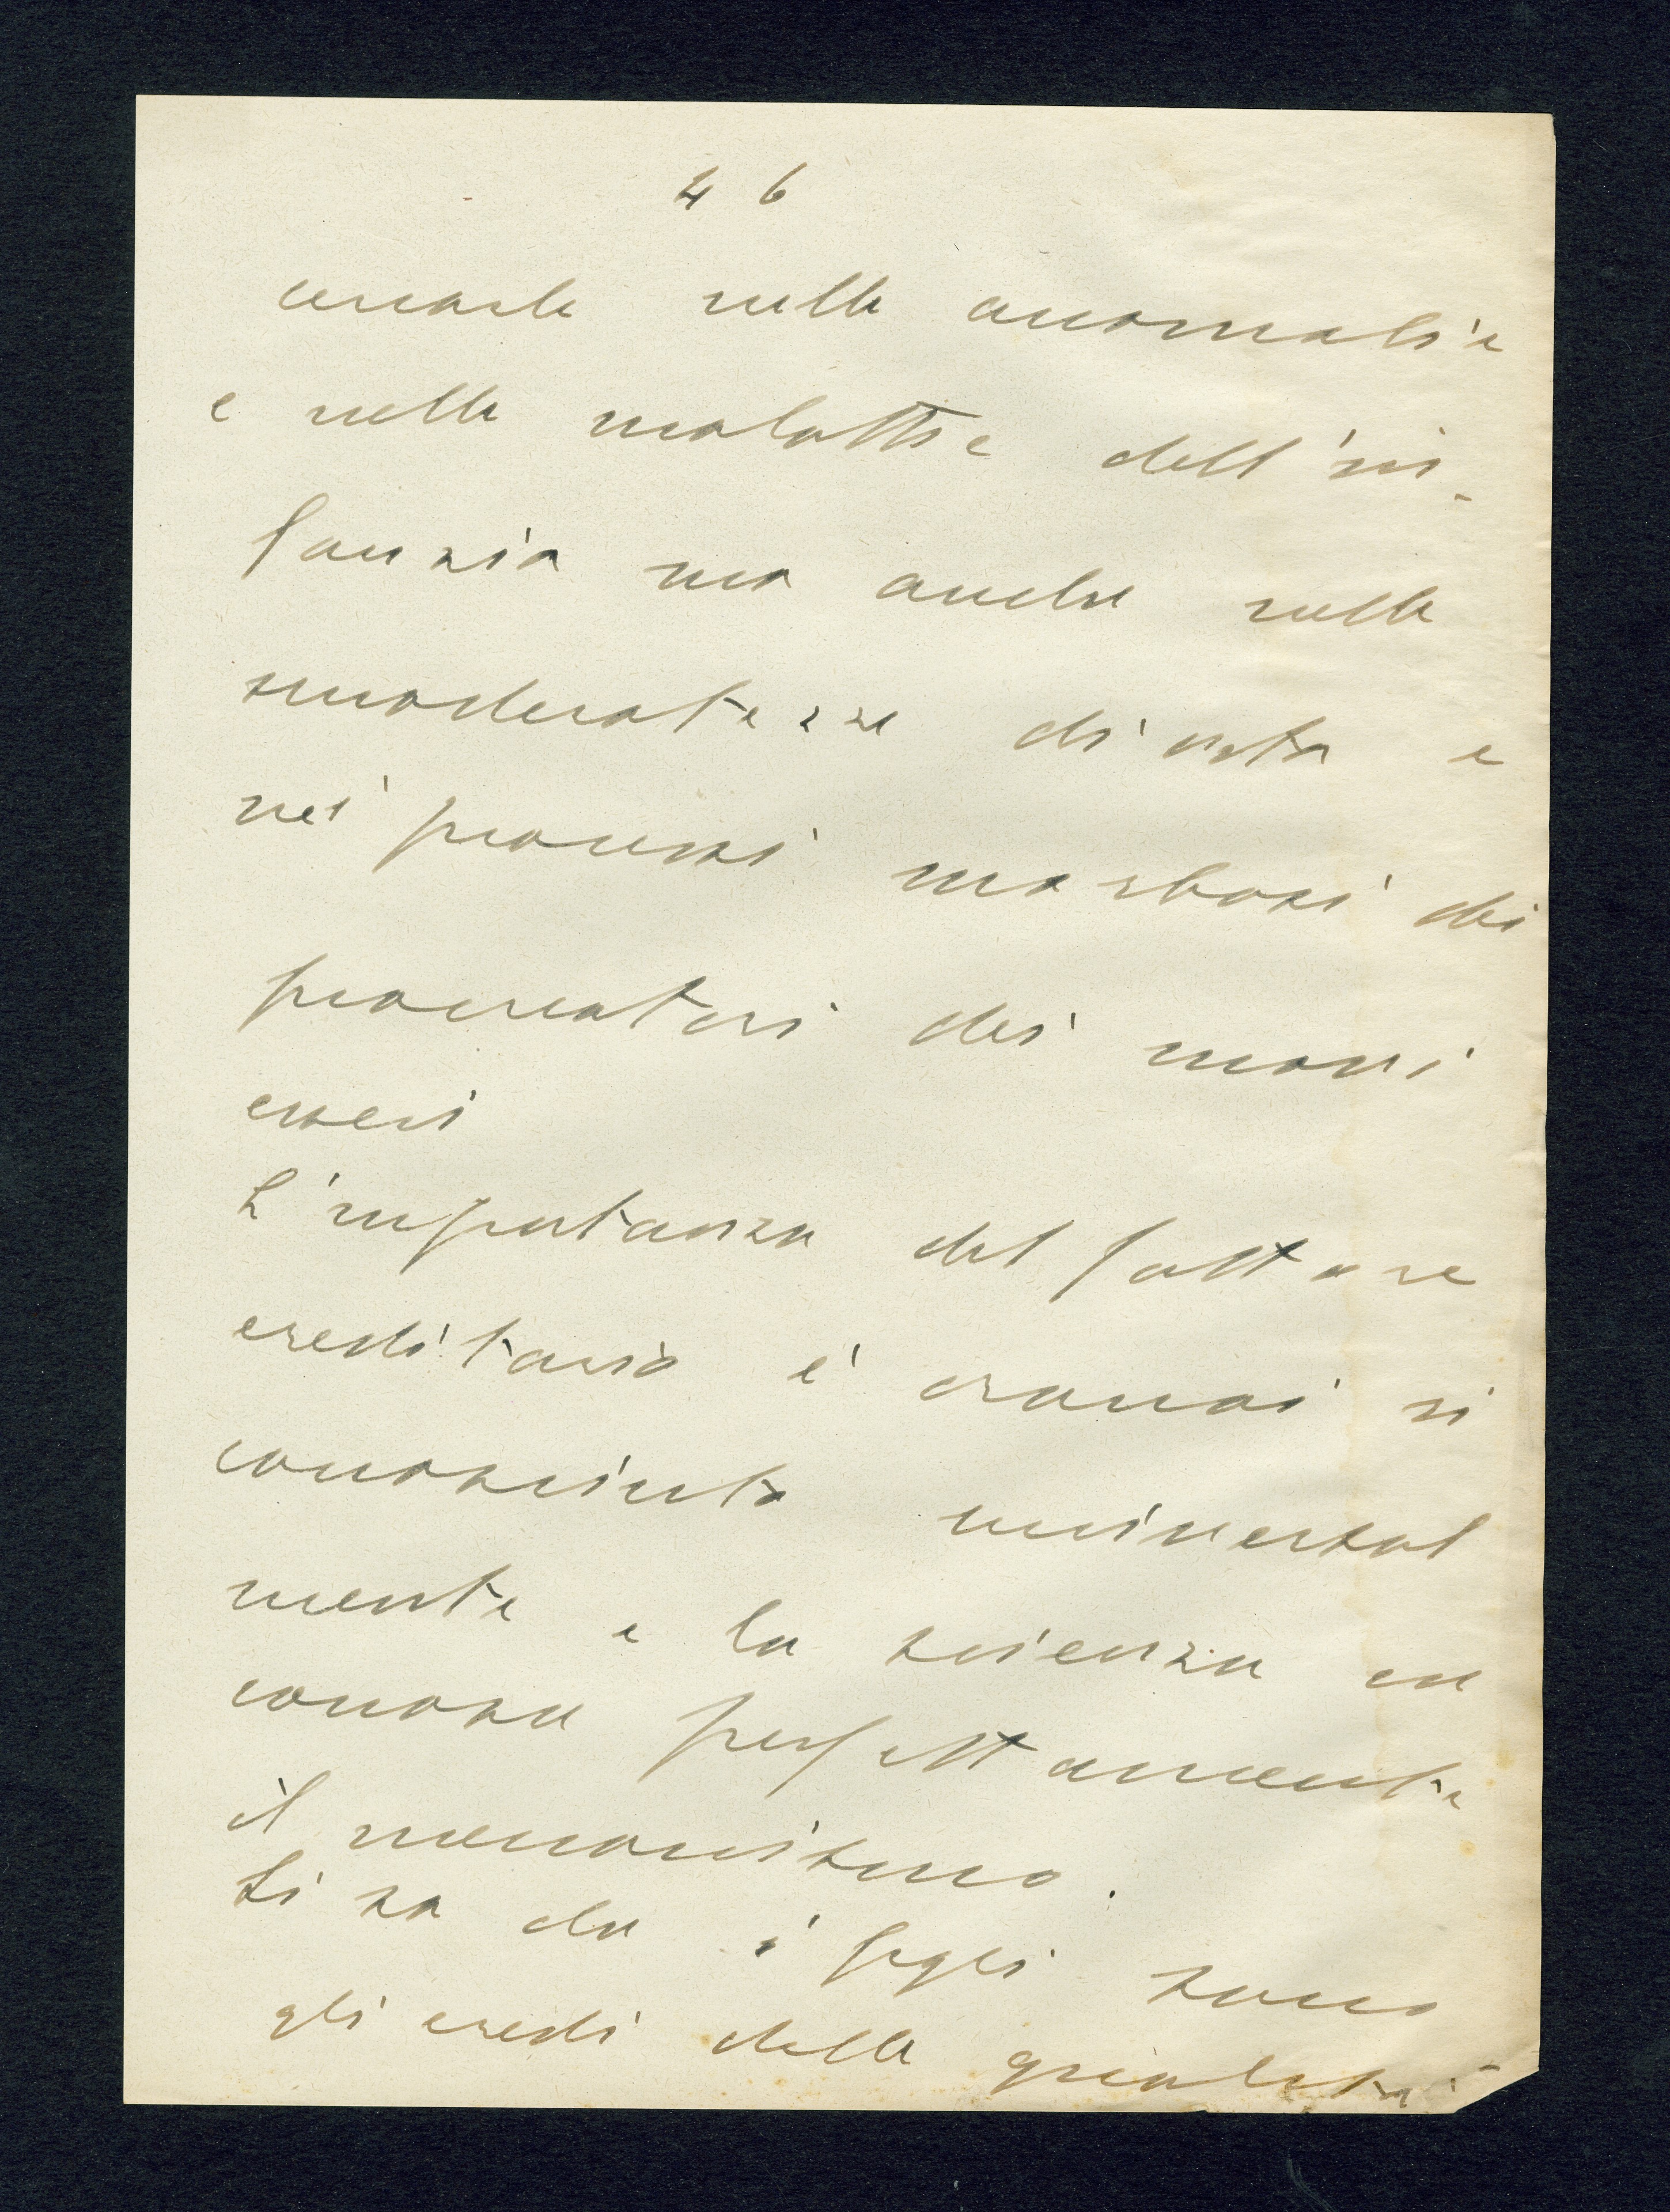 46
cercarle nelle anomalie
e nelle malattie dell'in-
fanzia ma anche nelle
smoderatezze di vita e
nei processi morbosi dei
procreatori dei nuovi
esseri
L'importanza del fattore
ereditario è oramai ri
conosciuta universal
mente e la scienza ne
conosce perfettamente
il meccanismo.
Si sa che i figli sono
gli eredi delle qualità